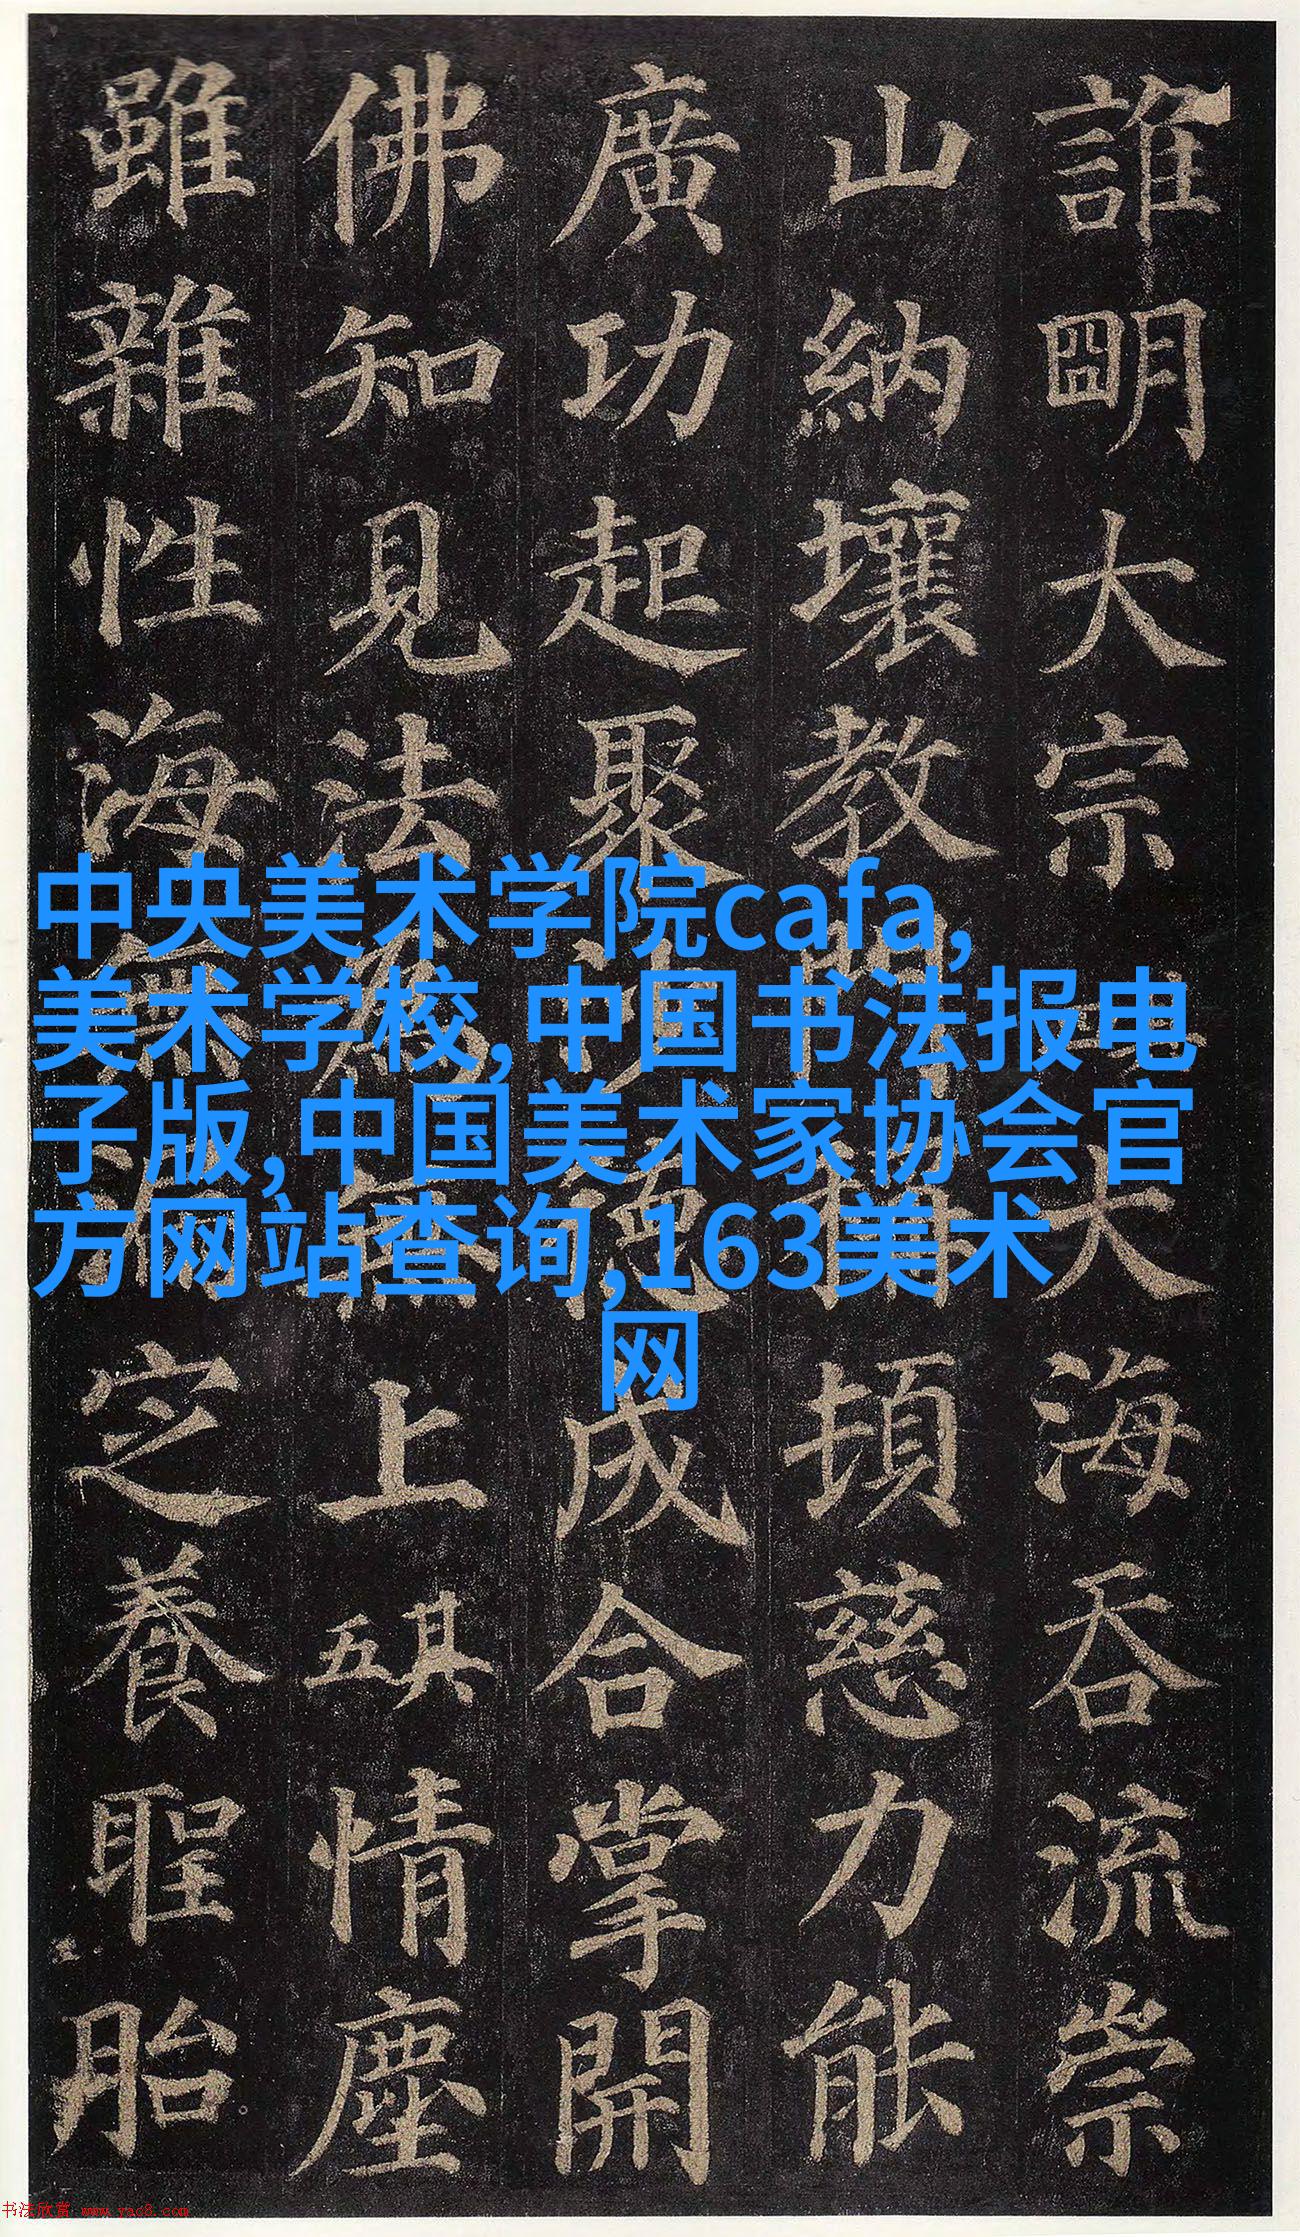 誰明大宗大海吞流崇
山納壤教門稱頓慈力能
廣功起聚沙德成合掌開
佛知見法為無上其五情塵
雖雜性海無漏定養聖胎
中央美术学院cafa,
美术学校,中国书法报电
子版,中国美术家协会官
方网站查询,163美术
网
书法欣赏 www.yac8.com